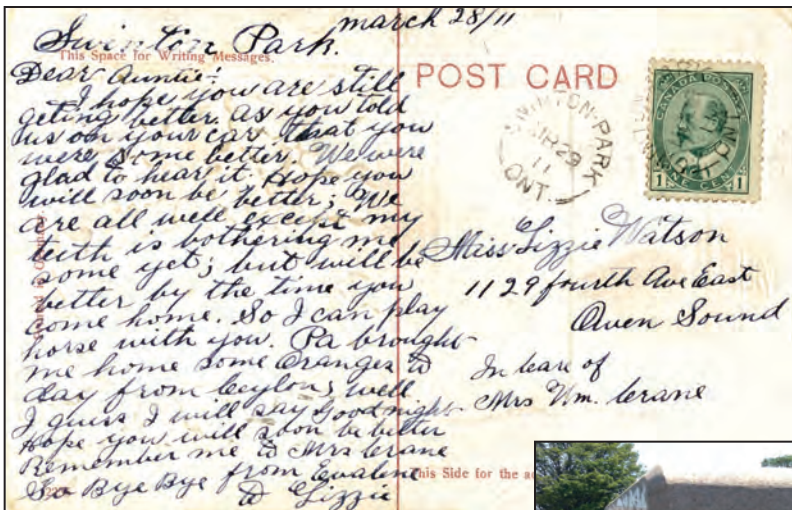 march 28/11
Swinton Park.
This Space for Writing Messages.
Dear Auntie:
I hope you are still
geting better. as you told
us on your car that you
were some better. We were
glad to hear it. Hope you
will soon be better; We
are all well except my
teeth is bothering me
some yet; but will be
better by the time you
come home. So I can play
horse with you. Pa brought
me home some oranges to
day from Ceylon, well
I guess I will say Good night
Hope you will soon be better
Remember me to Mrs Crane
So Bye Bye from Evaline
to Lizzie
POST CARD
SWINTON-PARK
MR 29
11
ONT.
CANADA POSTAGE
1 ONE CENT 1
Miss Lizzie Watson
1129 fourth Ave East
Owen Sound
In Care of
Mrs Wm. Crane
This Side for the a